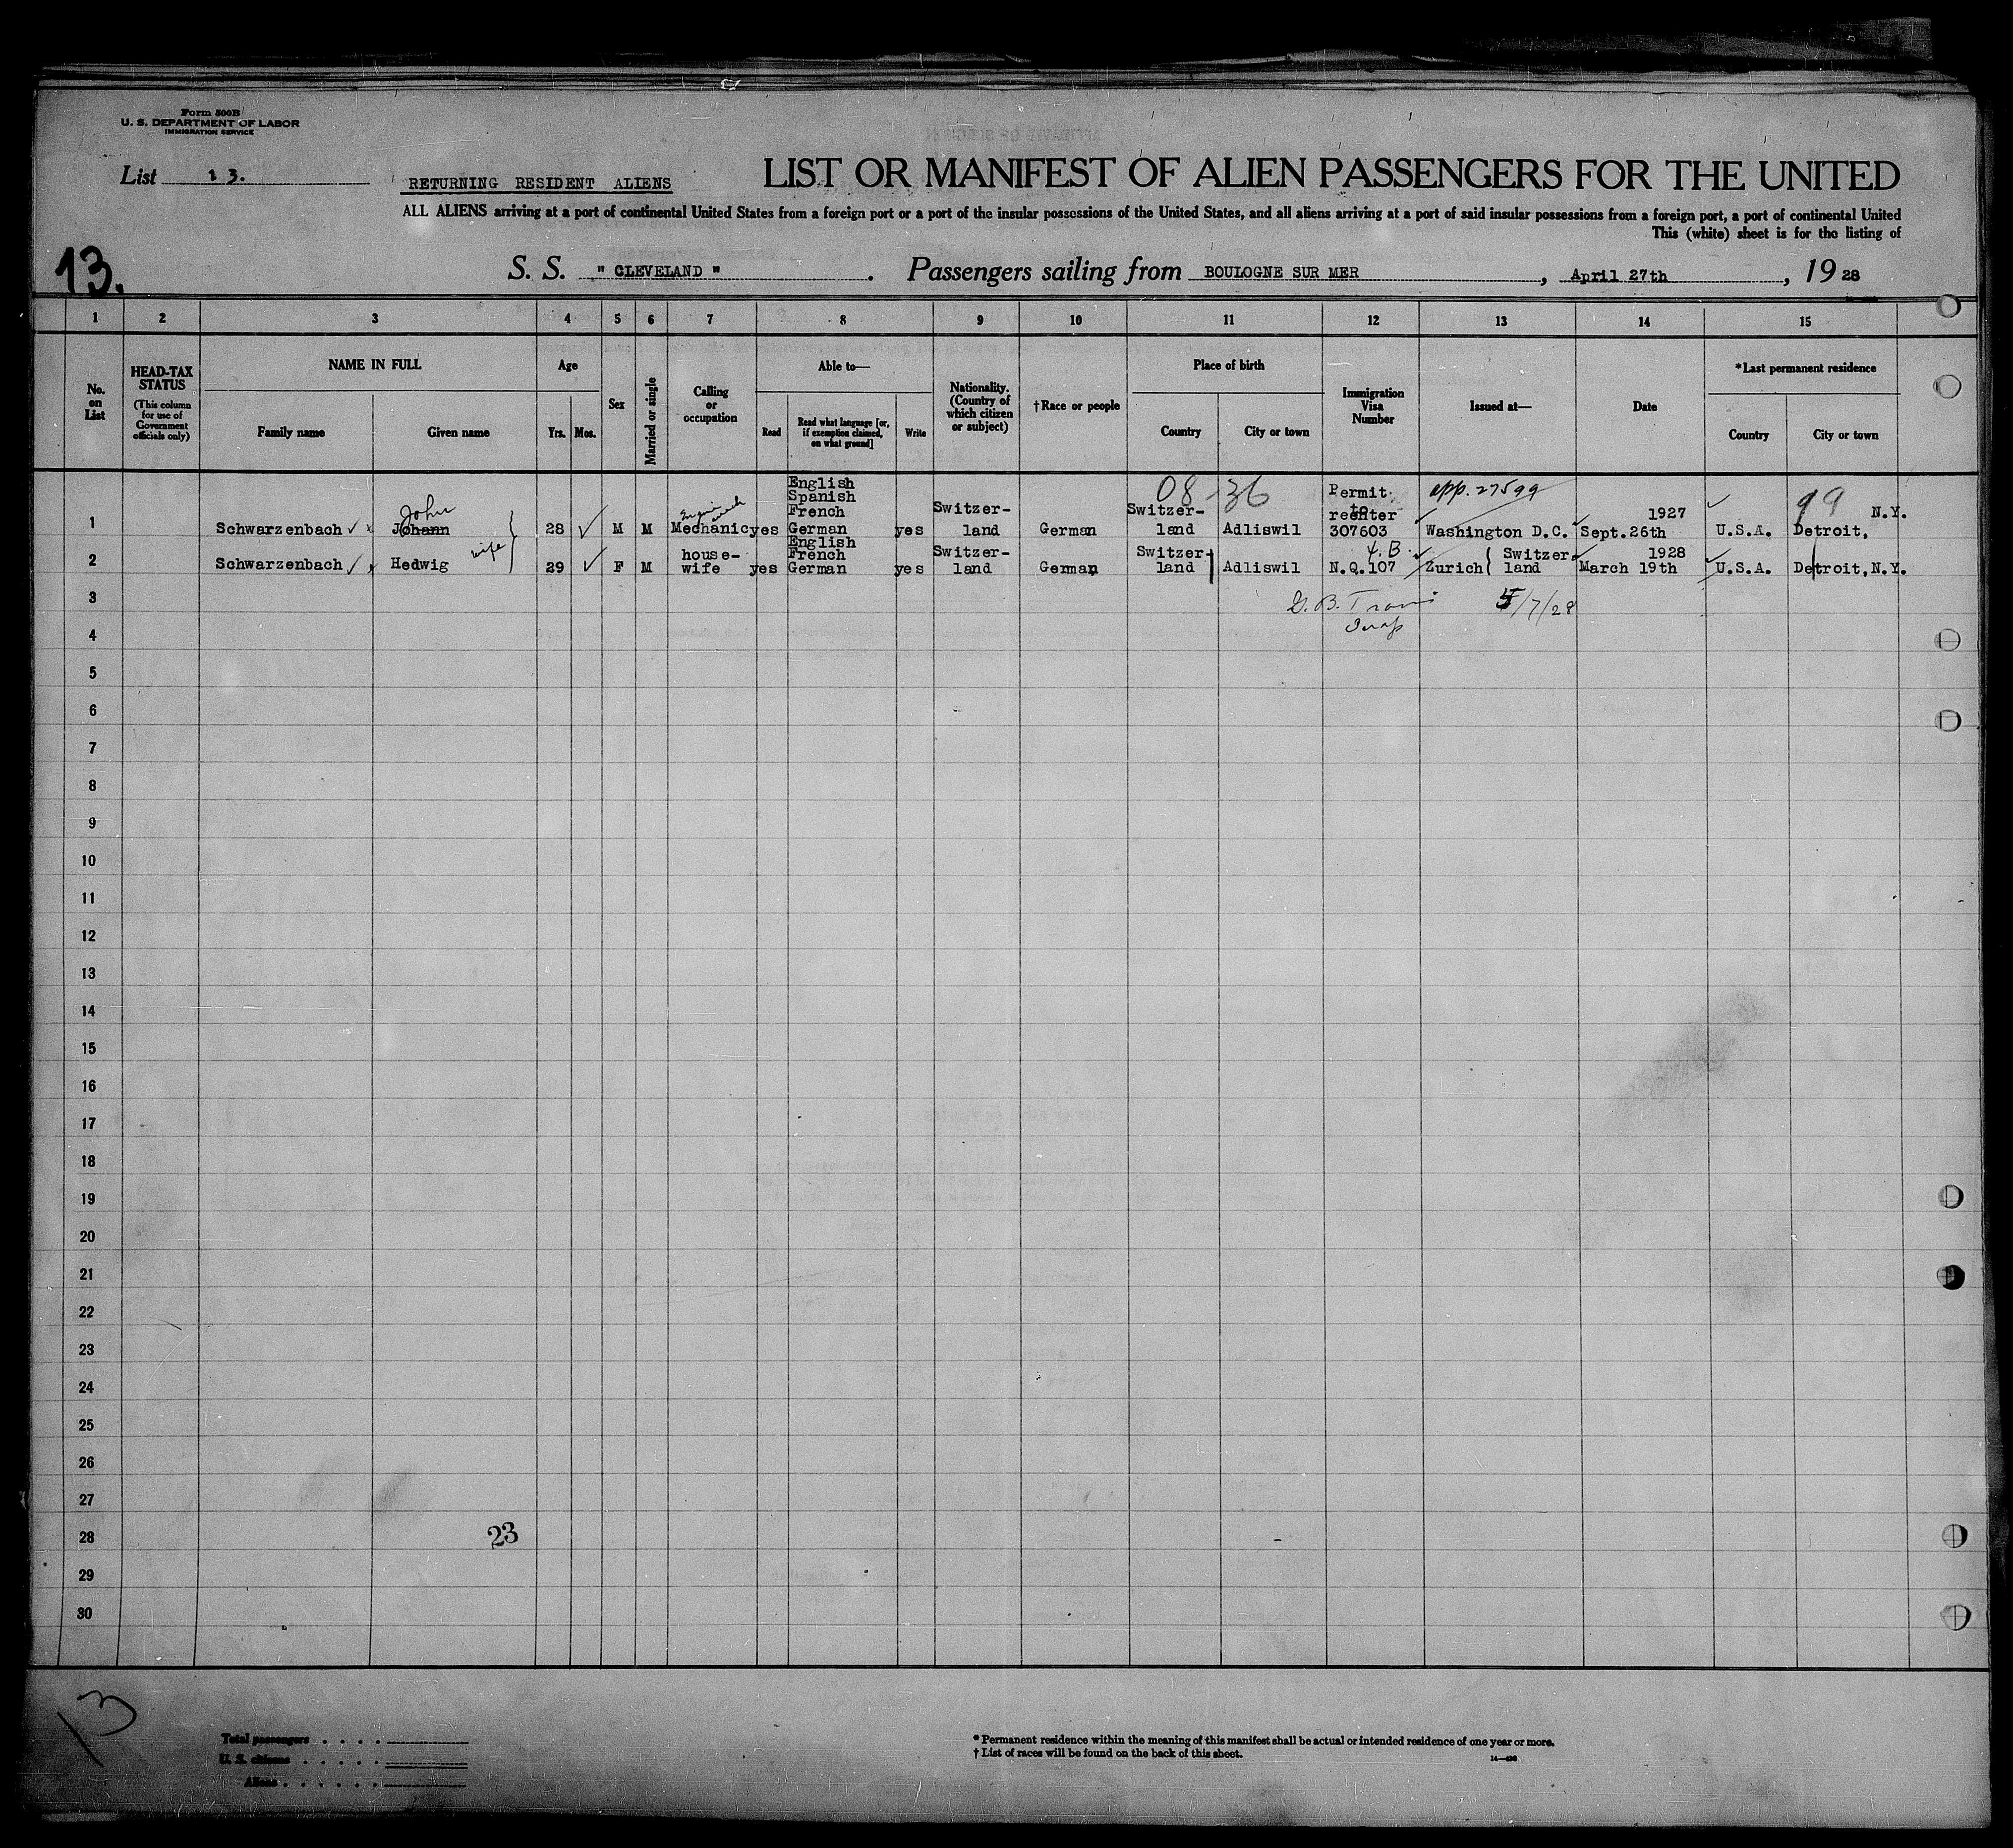 Form 500B
U. S. DEPARTMENT OF LABOR
IMMIGRATION SERVICE
List 13.
RETURNING RESIDENT ALIENS
LIST OR MANIFEST OF ALIEN PASSENGERS FOR THE UNITED
ALL ALIENS arriving at a port of continental United States from a foreign port or a port of the insular possessions of the United States, and all aliens arriving at a port of said insular possessions from a foreign port, a port of continental United
This (white) sheet is for the listing of
13.
S. S. " CLEVELAND " . Passengers sailing from BOULOGNE SUR MER , April 27th , 1928
1 2 3 4 5 6 7 8 9 10 11 12 13 14 15
No. on List
HEAD-TAX STATUS
(This column for use of Government officials only)
NAME IN FULL
Family name
Given name
Age
Yrs.
Mos.
Sex
Married or single
Calling or occupation
Able to—
Read
Read what language [or, if exemption claimed, on what ground]
Write
Nationality. (Country of which citizen or subject)
†Race or people
Place of birth
Country
City or town
Immigration Visa Number
Issued at—
Date
*Last permanent residence
Country
City or town
08-36
app. 27599
99
1 Schwarzenbach Johann John 28 M M Mechanic yes English Spanish French German yes Switzer-land German Switzer-land Adliswil Permit to reenter 307603 Washington D.C. Sept.26th 1927 U.S.A. Detroit, N.Y.
2 Schwarzenbach Hedwig wife 29 F M house-wife yes English French German yes Switzer-land German Switzer-land Adliswil N.Q.107 Zurich Switzer-land March 19th 1928 U.S.A. Detroit, N.Y.
3 5/7/28
4
5
6
7
8
9
10
11
12
13
14
15
16
17
18
19
20
21
22
23
24
25
26
27
28 23
29
30
13
Total passengers
U. S. citizens
Aliens
* Permanent residence within the meaning of this manifest shall be actual or intended residence of one year or more.
† List of races will be found on the back of this sheet.